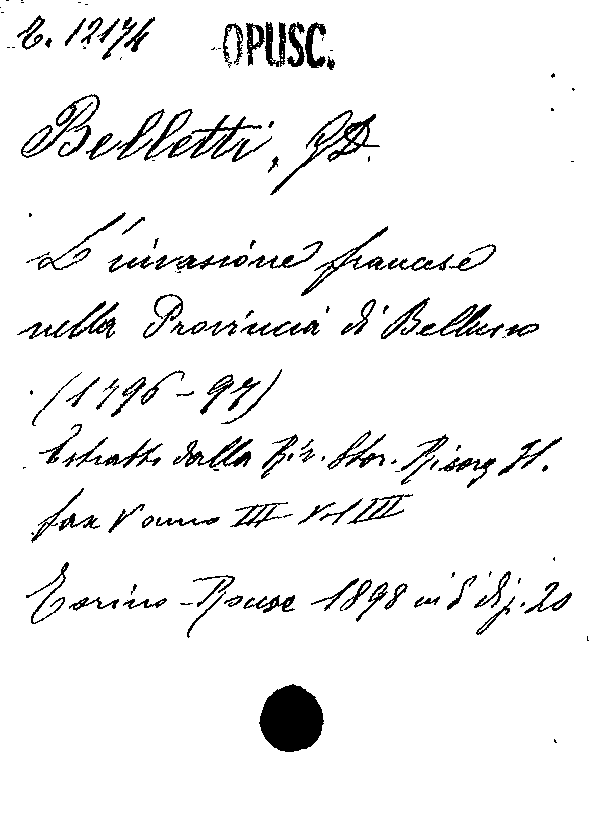 12174 OPUSC.
Belletti, G. D.
L'invasione francese
nella Provincia di Belluno
(1796-97)
Estratto dalla Riv. Stor. Risorg It.
fas V anno III Vol III
Torino - Rouse 1898 in 8 di p. 20